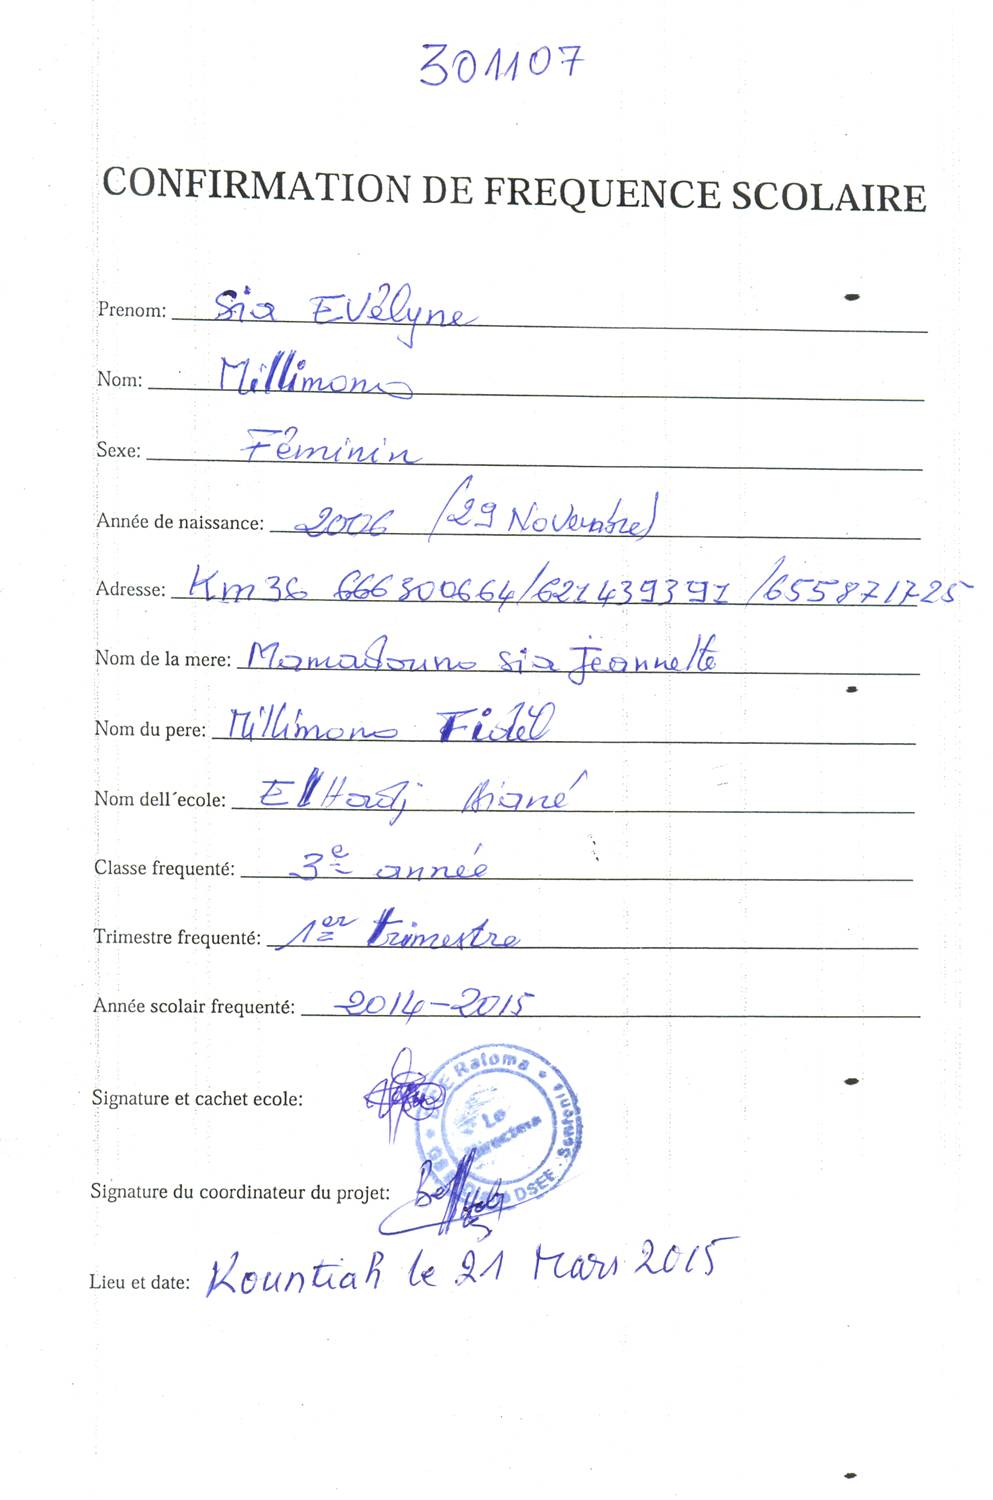 301107
CONFIRMATION DE FREQUENCE SCOLAIRE
Prenom: Sia Evélyne
Nom: Millimono
Sexe: Féminin
Année de naissance: 2006 (29 Novembre)
Adresse: Km36 666300664/621439391/655871725
Nom de la mere: Mamadouno Sia Jeannette
Nom du pere: Millimono Fidèl
Nom dell´ecole: El Hadj Biané
Classe frequenté: 3e année
Trimestre frequenté: 1er trimestre
Année scolair frequenté: 2014-2015
Signature et cachet ecole:
Ratoma
Le
DSEE
Signature du coordinateur du projet:
Lieu et date: Kountiah le 21 Mars 2015